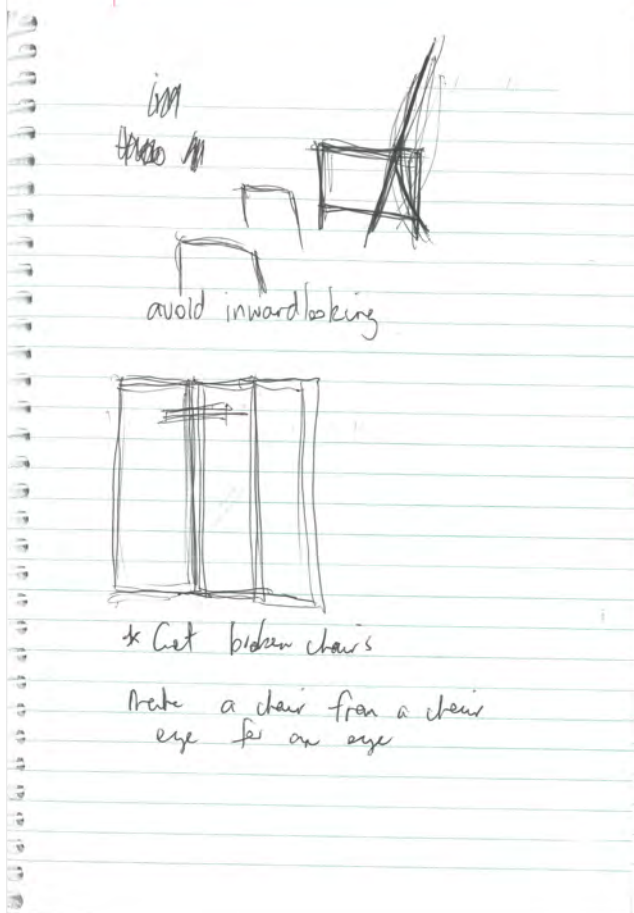 avoid inwardlooking
* Get broken chairs
a chair from a chair
eye for an eye